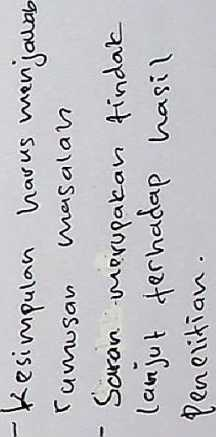 - Kesimpulan harus menjawab
rumusan masalah
- Saran merupakan tindak
lanjut terhadap hasil
penelitian.